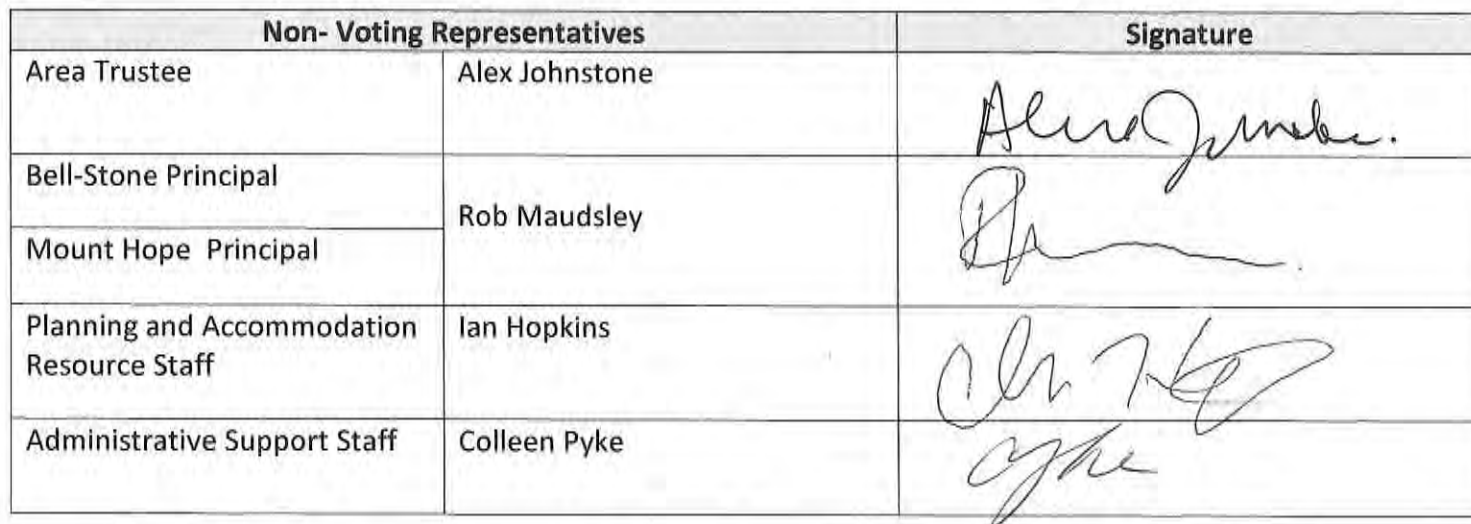 Non- Voting Representatives Signature
Area Trustee Alex Johnstone
Bell-Stone Principal
Rob Maudsley
Mount Hope Principal
Planning and Accommodation Ian Hopkins
Resource Staff
Administrative Support Staff Colleen Pyke